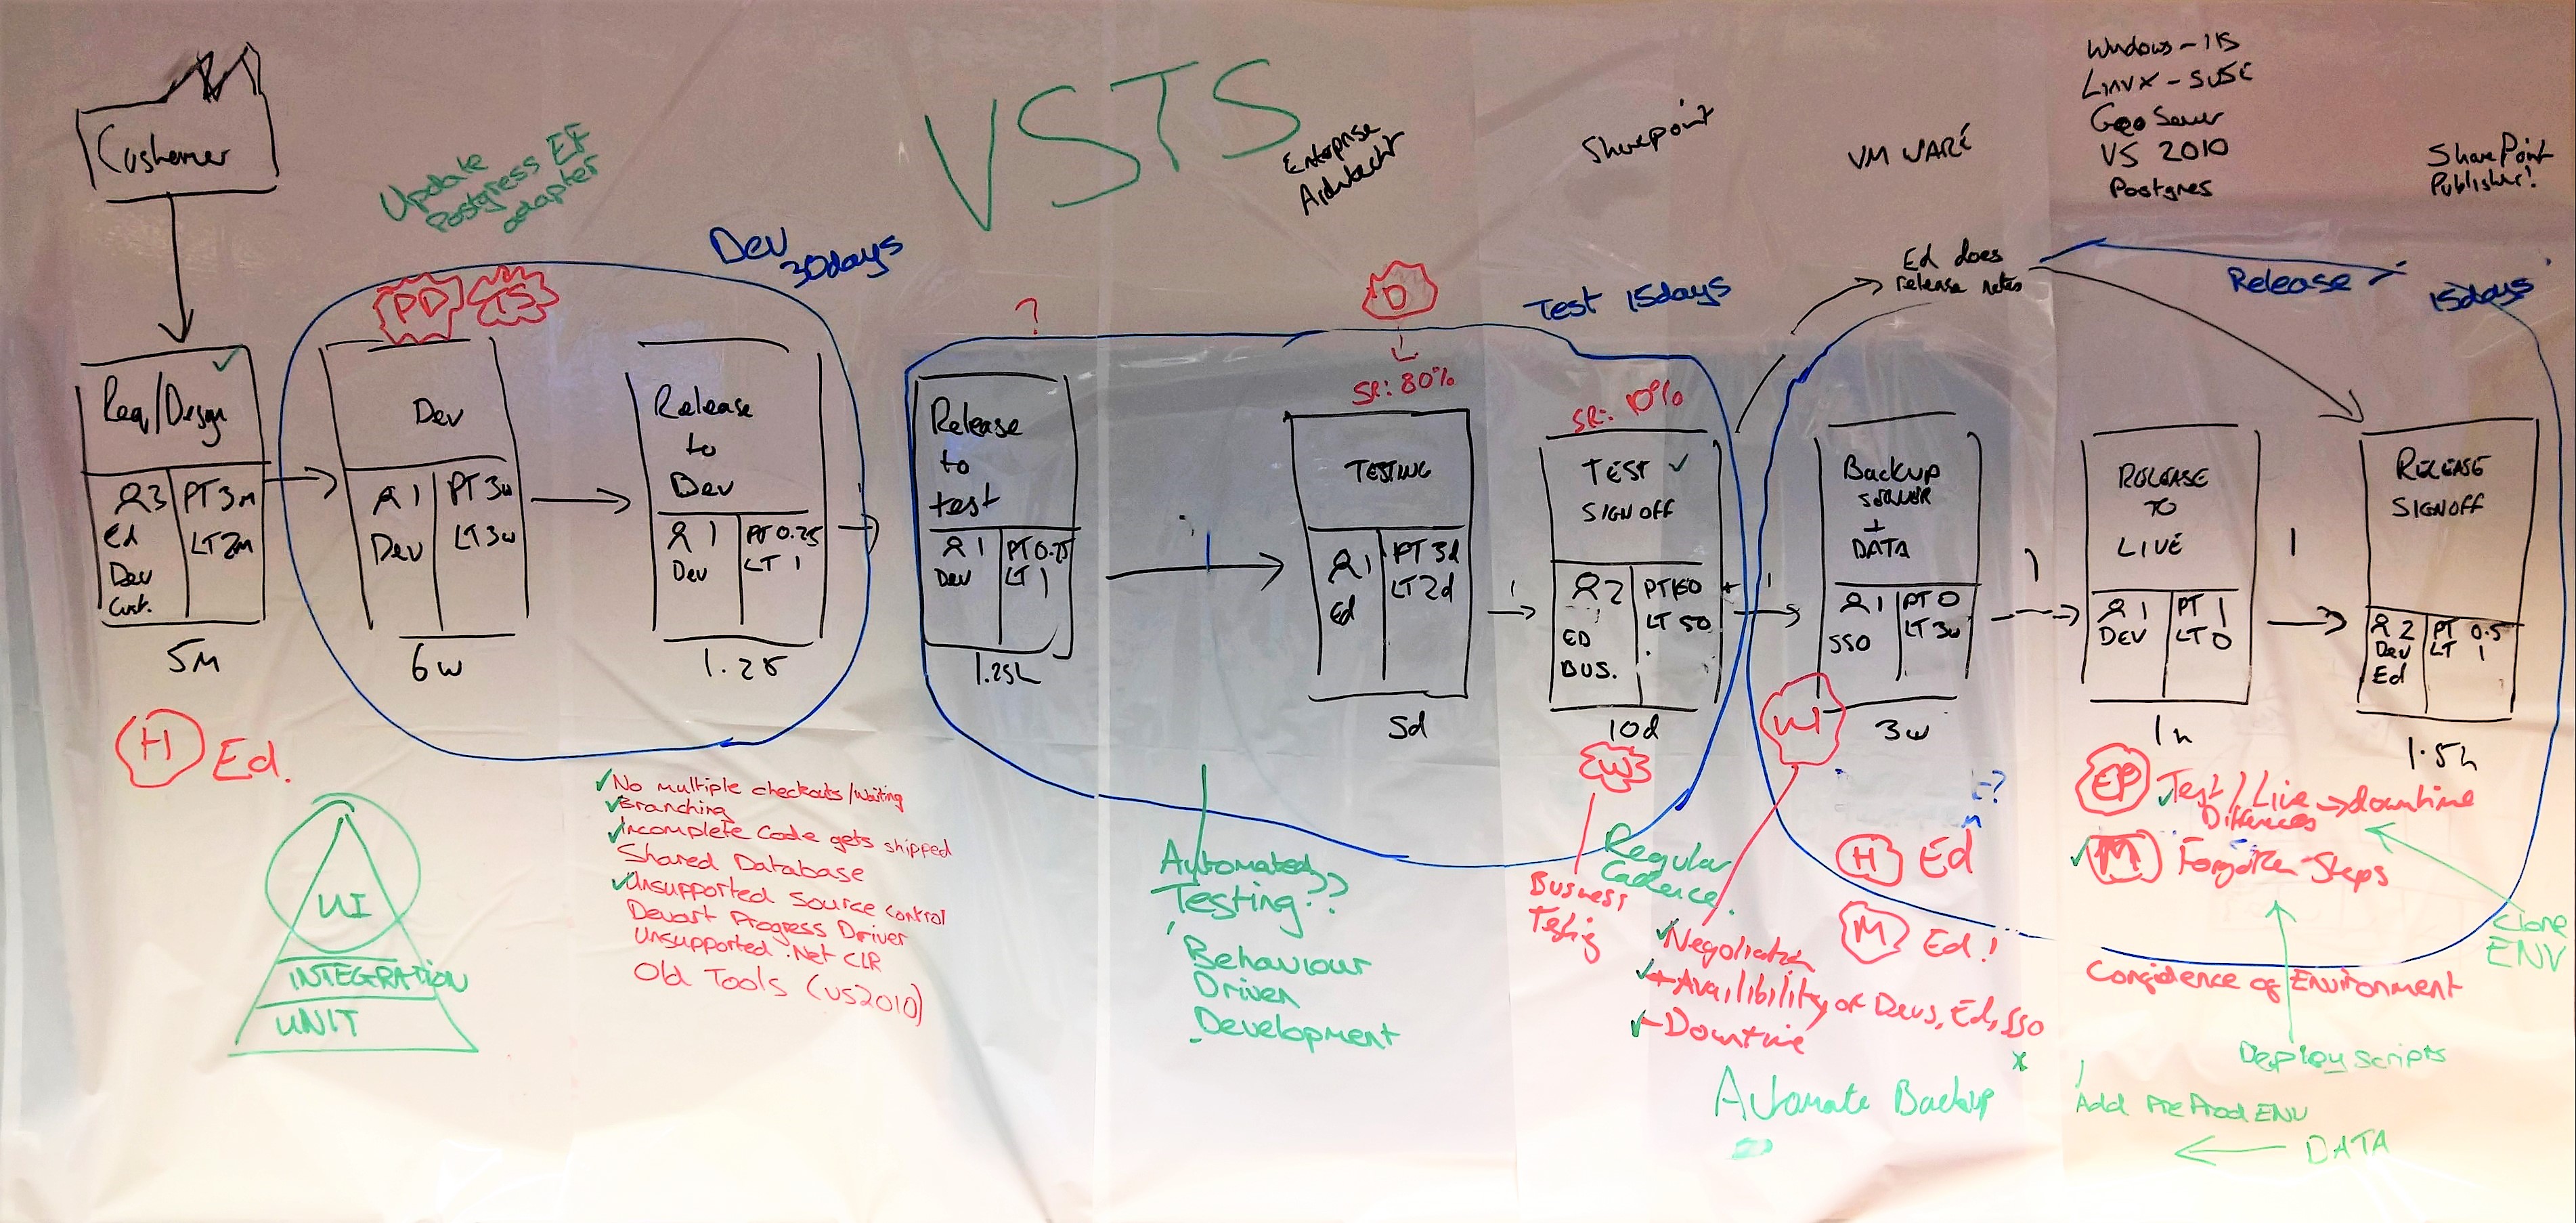 Customer
Update
Postgress EF
adapter
VSTS
Enterprise
Architect
Sharepoint
VM WARE
Windows - IIS
Linux - SUSE
Geo Server
VS 2010
Postgres
SharePoint
Publisher!
Dev
30days
Test 15days
Ed does
release notes
Release
15days
PD
TS
?
D
SR: 80%
SR: 10%
Req/Design ✓
3
Ed
Dev
Cust.
PT 3M
LT 2M
5M
Dev
1
Dev
PT 3w
LT 3w
6w
Release
to
Dev
1
Dev
PT 0.25
LT 1
1.25
Release
to
test
1
Dev
PT 0.25
LT 1
1.25h
TESTING
1
Ed
PT 3d
LT 2d
5d
1
TEST ✓
SIGN OFF
2
ED
BUS.
LT 5D
10d
1
Backup
SERVER
+
DATA
1
SSO
PT 0
LT 3w
3w
1
RELEASE
TO
LIVE
1
DEV
PT 1
LT 0
1h
1
RELEASE
SIGNOFF
2
Dev
Ed
PT 0.5
LT 1
1.5h
H Ed.
UI
INTEGRATION
UNIT
✓ No multiple checkouts/waiting
✓ Branching
✓ Incomplete Code gets shipped
Shared Database
✓ Unsupported Source control
Devart Progress Driver
Unsupported .Net CLR
Old Tools (VS2010)
Automated
Testing??
Behaviour
Driven
Development
W
Business
Testing
Regular
Cadence.
W
✓ Negotiation
✓ + Availibility of Devs, Ed, SSO
✓ - Downtime
Automate Backup
H Ed
M Ed!
EP ✓ Test/Live → downtime
Differences
✓ M Forgotten Steps
Clone
ENV
Confidence of Environment
Deploy scripts
Add Pre Prod ENV
← DATA